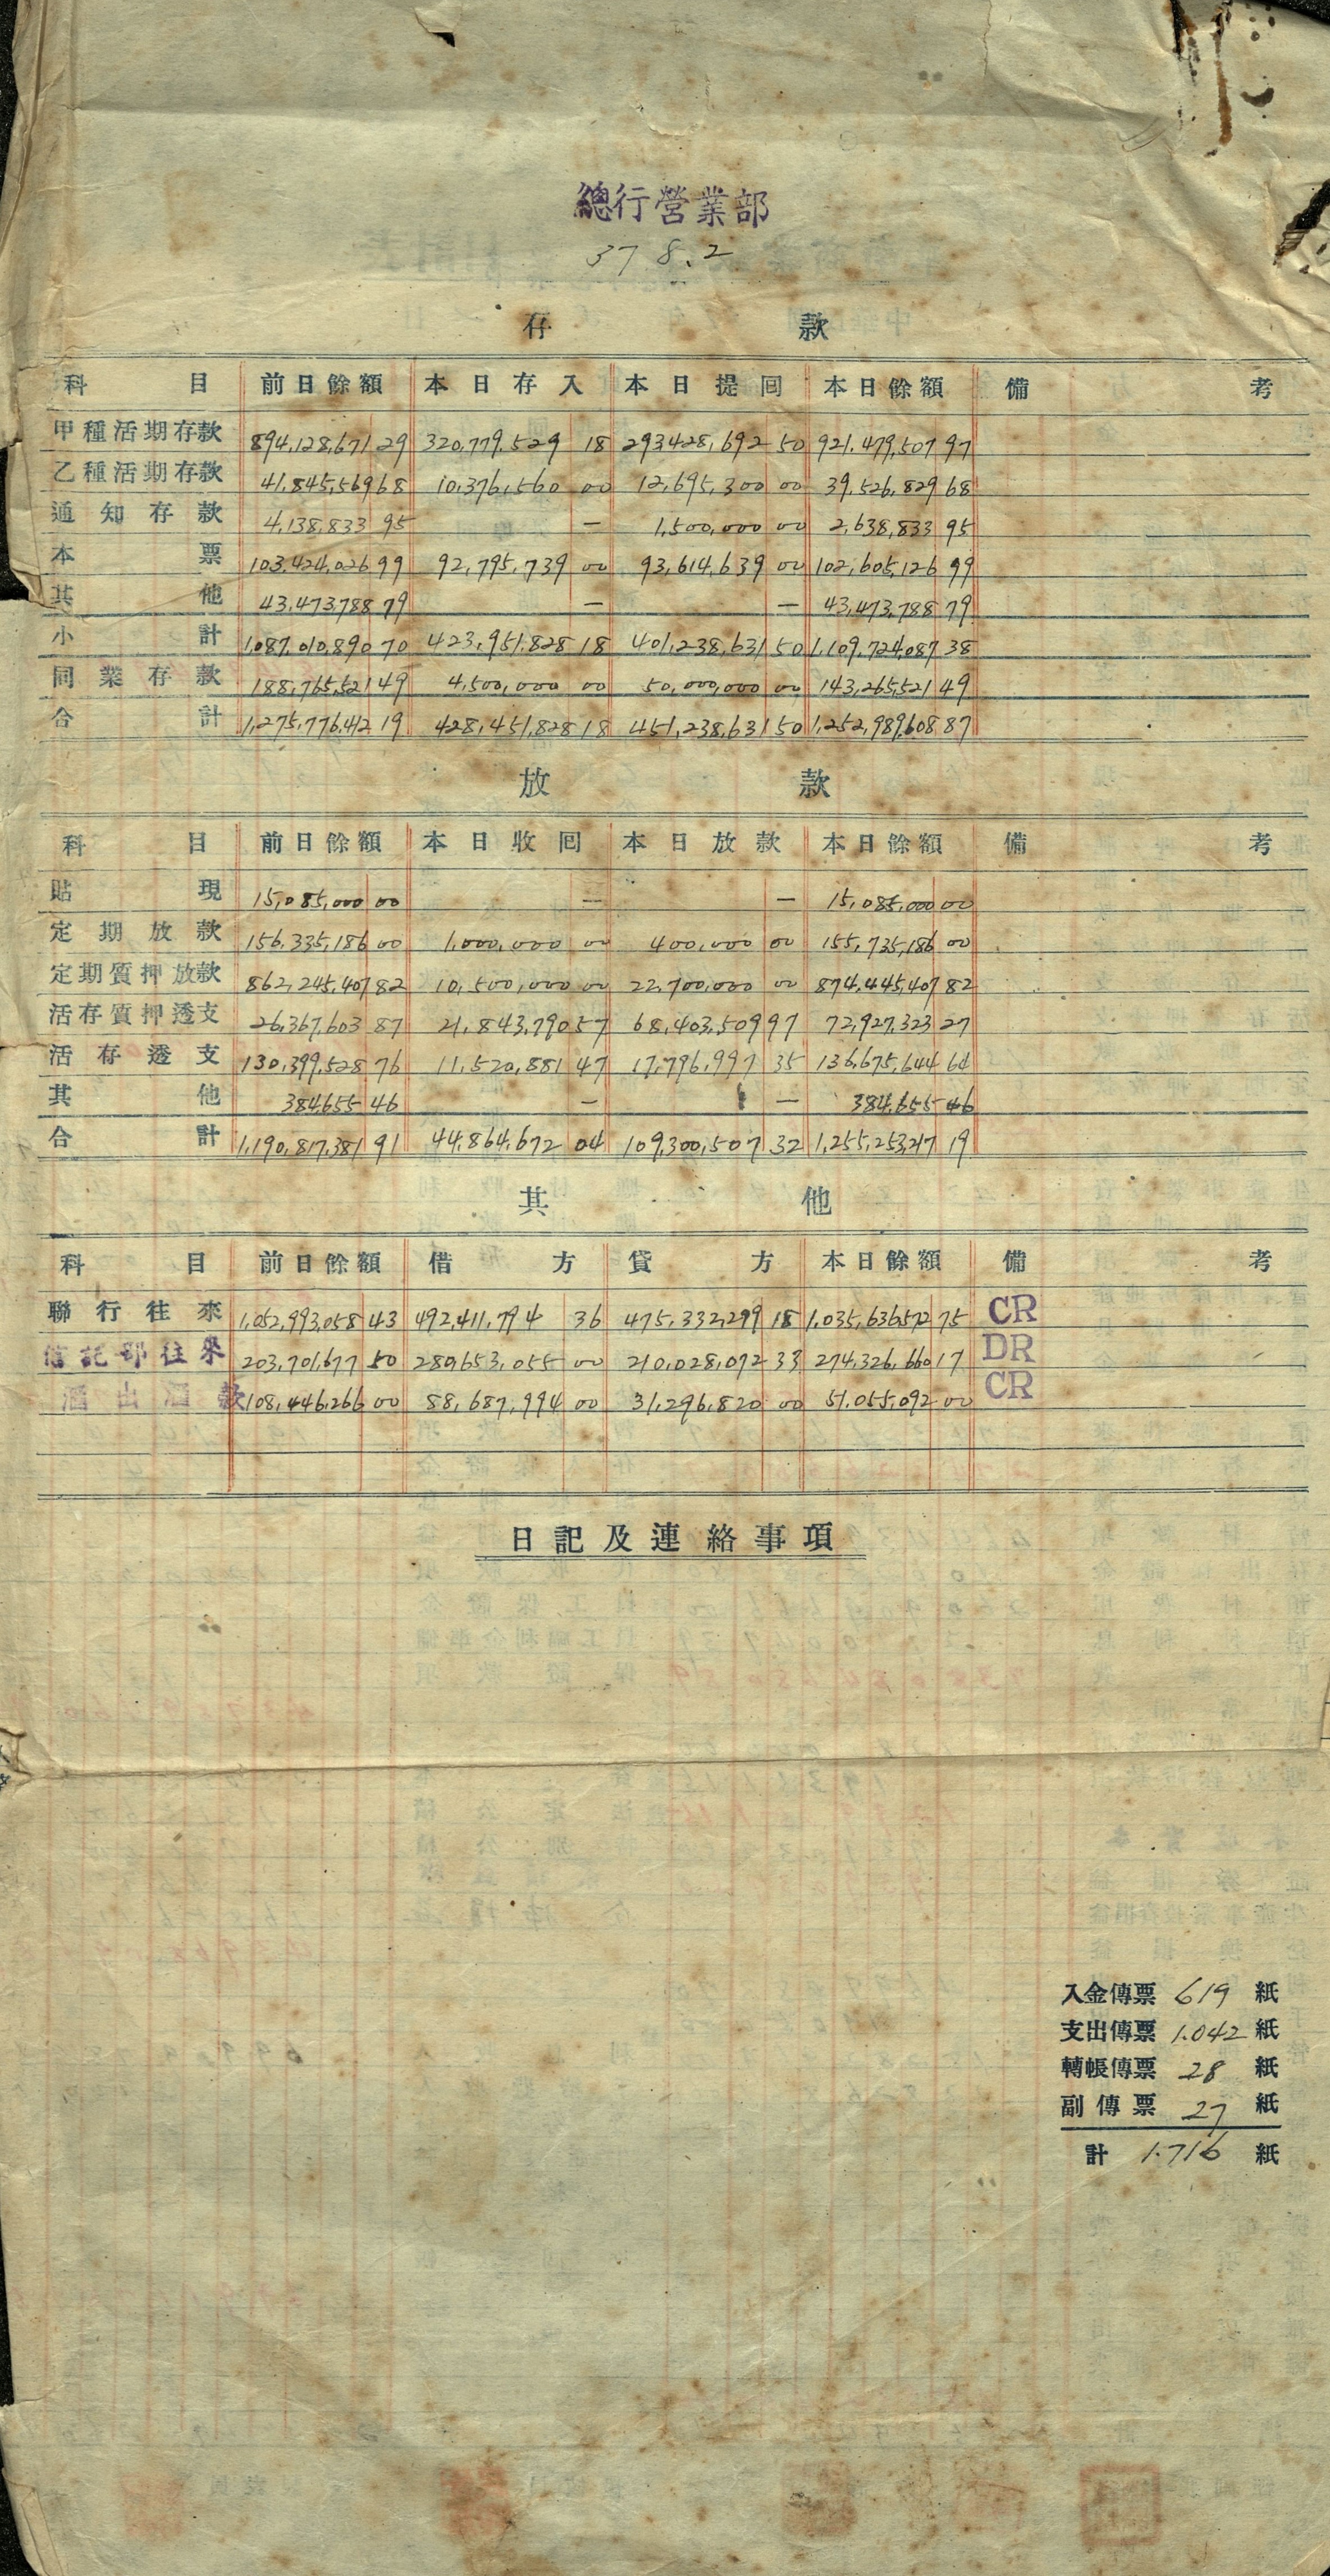 總行營業部
37 8.2
存款
科目 前日餘額 本日存入 本日提回 本日餘額 備考
甲種活期存款 894,128,671 29 320,779,529 18 293,428,692 50 921,479,507 97
乙種活期存款 41,845,569 68 10,376,560 00 12,695,300 00 39,526,829 68
通知存款 4,138,833 95 — 1,500,000 00 2,638,833 95
本票 103,424,026 99 92,795,739 00 93,614,639 00 102,605,126 99
其他 43,473,788 79 — — 43,473,788 79
小計 1,087,010,890 70 423,951,828 18 401,238,631 50 1,109,724,087 38
同業存款 188,765,521 49 4,500,000 00 50,000,000 00 143,265,521 49
合計 1,275,776,412 19 428,451,828 18 451,238,631 50 1,252,989,608 87
放款
科目 前日餘額 本日收回 本日放款 本日餘額 備考
貼現 15,085,000 00 — — 15,085,000 00
定期放款 156,335,186 00 1,000,000 00 400,000 00 155,735,186 00
定期質押放款 862,245,407 82 10,500,000 00 22,700,000 00 874,445,407 82
活存質押透支 26,367,603 87 21,843,790 57 68,403,509 97 72,927,323 27
活存透支 130,399,528 76 11,520,881 47 17,796,997 35 136,675,644 64
其他 384,655 46 — — 384,655 46
合計 1,190,817,381 91 44,864,672 04 109,300,507 32 1,255,253,217 19
其他
科目 前日餘額 借方 貸方 本日餘額 備考
聯行往來 1,052,993,058 43 492,411,794 36 475,332,299 18 1,035,636,572 75 CR
信託部往來 203,701,677 50 280,653,055 00 210,028,072 33 274,326,660 17 DR
滙出滙款 108,446,266 00 88,687,994 00 31,296,820 00 51,055,092 00 CR
日記及連絡事項
入金傳票 619 紙
支出傳票 1.042 紙
轉帳傳票 28 紙
副傳票 27 紙
計 1.716 紙